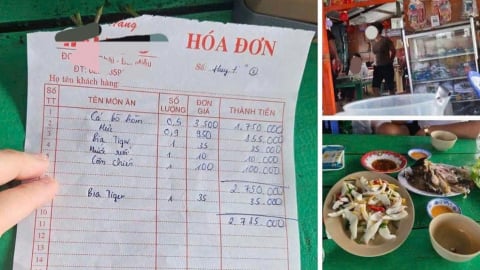 HÓA ĐƠN
ĐC:
Số:
ĐT:
Họ tên khách hàng:
SỐ TT TÊN MÓN ĂN SỐ LƯỢNG ĐƠN GIÁ THÀNH TIỀN
1 Cá bò hòm 0,5 3.500 1.750.000
2 Mực 0,9 950 855.000
3 Bia Tiger 1 35 35.000
Nước suối 1 10 10.000
Cơm chiên 1 100 100.000
2.750.000
Bia Tiger 1 35 35.000
10
11 2.785.000
12
13
14